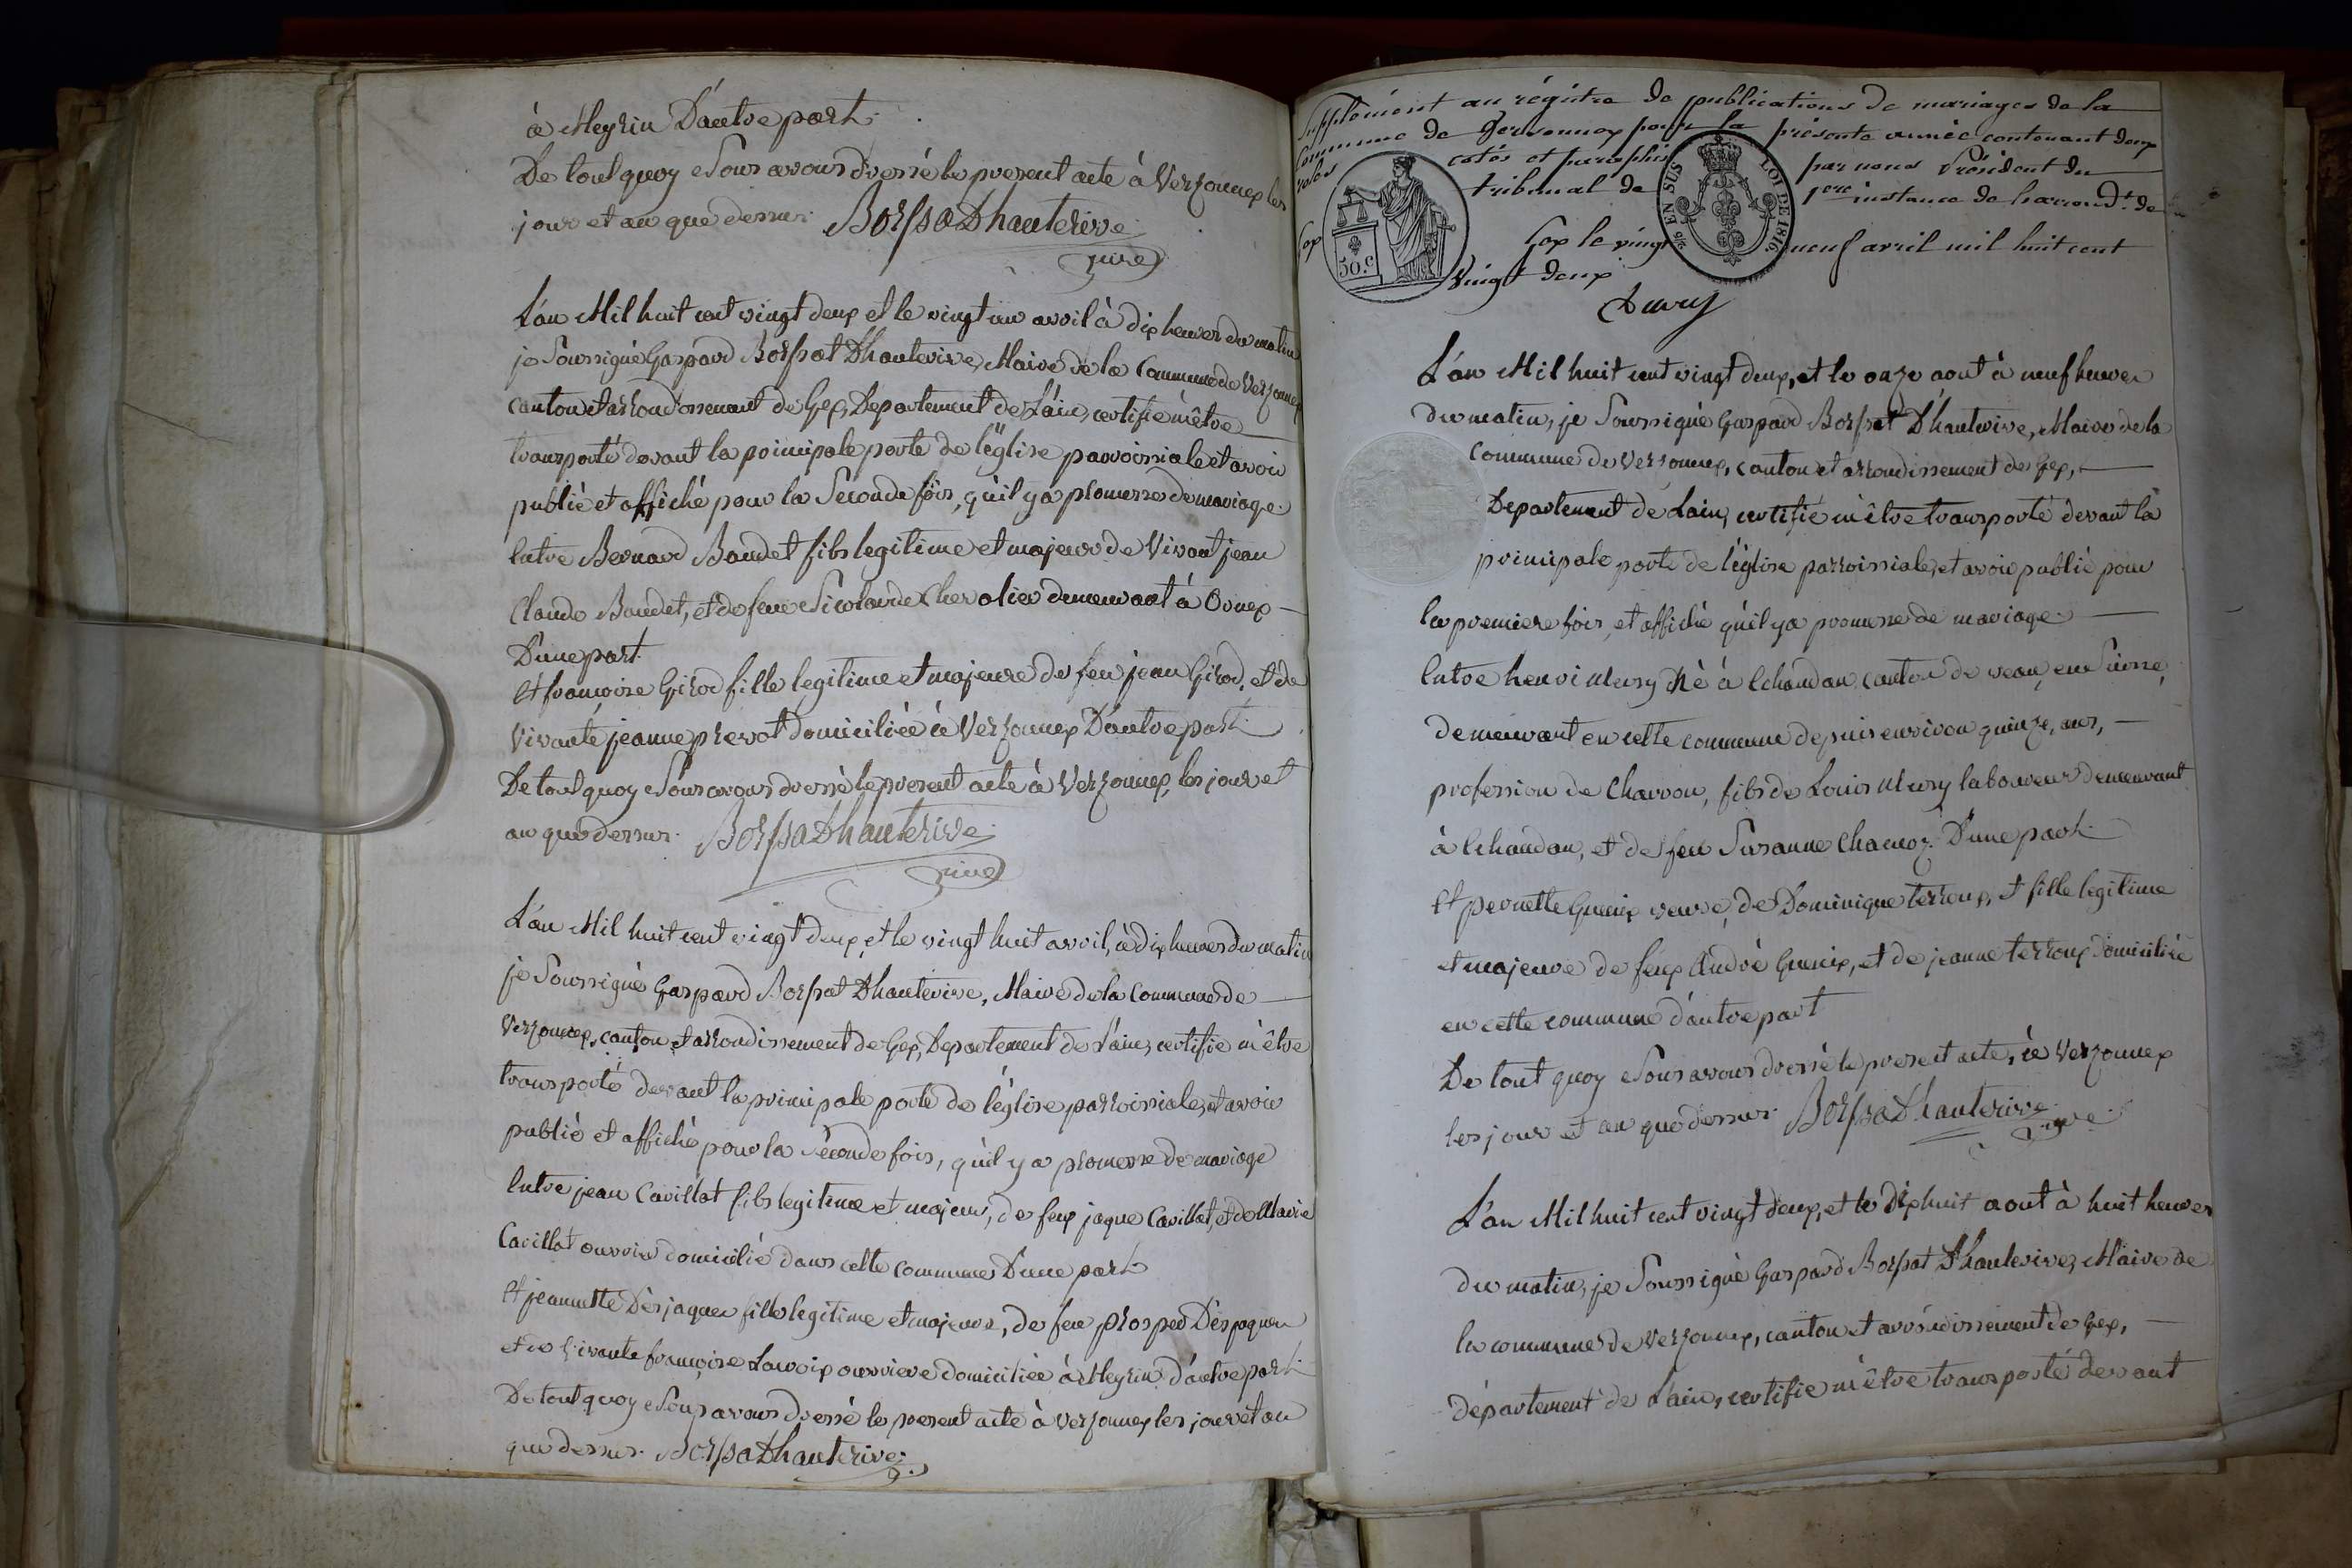 à Meyrin D'autre part.
De tout quoy Nous avons dressé le present acte à Verzonnex les
jour et an que dessus. Borssat Dhauterive
maire
L'an Mil huit cent vingt deux et le vingt un avril à dix heures du matin
je Soussigné Gaspard Borssat Dhauterive, Maire de la Commune de Verzonnex
canton et arrondissement de Gex, Departement de L'ain, certifie m'être
transporté devant la principale porte de l'église parroissiale et avoir
publié et affiché pour la Seconde fois, qu'il y a promesse de mariage
Entre Bernard Baudet fils legitime et majeur de Vivant jean
Claude Baudet, et de feue Nicolarde Chevalier demeurant à Ornex
D'une part.
Et françoise Girod fille legitime et majeure de feu jean Girod, et de
Vivante jeanne prevot domiciliée à Verzonnex D'autre part.
De tout quoy Nous avons dressé le present acte à Verzonnex, les jour et
an que dessus. Borssat Dhauterive
maire
L'an Mil huit cent vingt deux, et le vingt huit avril, à dix heures du matin
je Soussigné Gaspard Borssat Dhauterive, Maire de la Commune de
Verzonnex, canton et arrondissement de Gex, Departement de L'ain, certifie m'être
transporté devant la principale porte de l'église parroissiale, et avoir
publié et affiché pour la Séconde fois, qu'il y a promesse de mariage
Entre jean Cavillat fils legitime et majeur, de feux jaque Cavillat, et de Marie
Cavillat ouvrier domicilié dans cette commune D'une part.
Et jeannette Desjaques fille legitime et majeure, de feu prosper Désjaques
et de vivante françoise Lacroix ouvriere domiciliée à Meyrin d'autre part.
De tout quoy Nous avons dressé le present acte à Verzonnex les jour et an
que dessus. Borssat Dhauterive.
Supplément au régistre de publications de mariages de la
Commune de Versonnex pour la présente année contenant deux
roles cotés et paraphés par nous Président du
tribunal de 1ere instance de l'arrondt. de
Gex Gex le vingt neuf avril mil huit cent
vingt deux
50.c
EN SUS
LOI DE 1816.
L'an Mil huit cent vingt deux, et le onze aout à neuf heures
du matin, je Soussigné Gaspard Borssat D'hauterive, Maire de la
Commune de Verzonnex, canton et arrondissement de Gex,
Departement de Lain, certifie m'être transporté devant la
principale porte de l'église parroissiale, et avoir publié pour
la premiere fois, et affiché qu'il y a promesse de mariage
Entre henri Mery Né à Echandan canton de veau, en Suisse,
demeurant en cette commune depuis environ quinze, ans,
profession de Charron, fils de Louis Mery laboureur demeurant
à Echandan, et de feu Suzanne D'une part.
Et pernette Guenix veuve, de Dominique terroux, et fille legitime
et majeure de feux André Guenix, et de jeanne terroux domiciliée
en cette commune d'autre part
De tout quoy Nous avons dressé le present acte, à Verzonnex
les jour et an que dessus. Borssat Dhauterive
maire
L'an Mil huit cent vingt deux, et le dix huit aout à huit heures
du matin, je Soussigné Gaspard Borssat D'hauterive, Maire de
la commune de Verzonnex, canton et arrondissement de Gex,
département de L'ain, certifie m'être transporté devant